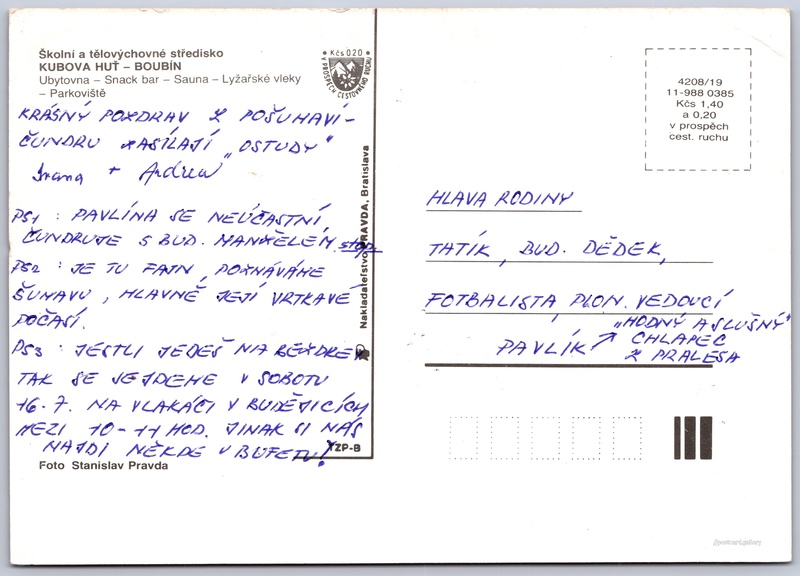 Školní a tělovýchovné středisko
KUBOVA HUŤ – BOUBÍN
Ubytovna – Snack bar – Sauna – Lyžařské vleky
– Parkoviště
• Kčs 0,20 •
V PROSPĚCH CESTOVNÉHO RUCHU
KRÁSNÝ POZDRAV Z POŠUMAVÍ-
ČUNDRU ZASÍLAJÍ „OSTUDY"
Ivana + Andrea
PS1 : PAVLÍNA SE NEÚČASTNÍ,
ČUNDRUJE S BUD. MANŽELEM. stop.
PS2 : JE TU FAJN, POZNÁVÁME
ŠUMAVU, HLAVNĚ JEJÍ VRTKAVÉ
POČASÍ.
PS3 : JESTLI JEDEŠ NA BEZDREV
TAK SE SEJDEME V SOBOTU
16.7. NA VLAKÁČI V BUDĚJICÍCH
MEZI 10-11 HOD. JINAK SI NÁS
NAJDI NĚKDE V BUFETU!
Foto Stanislav Pravda
Nakladatelstvo PRAVDA, Bratislava
TZP-8
4208/19
11-988 0385
Kčs 1,40
a 0,20
v prospěch
cest. ruchu
HLAVA RODINY
TATÍK, BUD. DĚDEK,
FOTBALISTA, PLON. VEDOUCÍ
PAVLÍK
„HODNÝ A SLUŠNÝ"
CHLAPEC
Z PRALESA
postcard.gallery